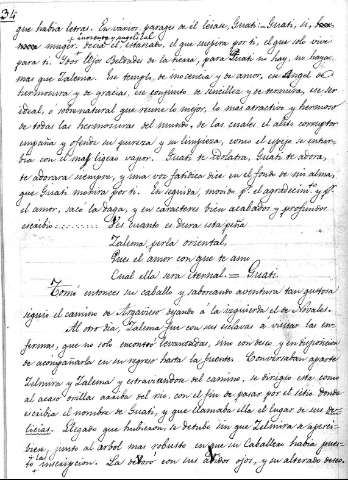 34
que habia letras. En varios parages de él leíase, Guati = Guati, si,
muger, decia el estatuto, el que suspira por ti, el que solo vive
para ti. Por Ojo Belrado de la tierra, para Guati no hay, no haya,
mas que Zalema. Un templo, de inocencia y de amor, un Angel de
hermosura y de gracias, un conjunto de sencillez y de ternura, un ser
ideal, o sobrenatural que reune lo mejor, lo mas atractivo y hermoso
de todas las hermosuras del mundo, de las cuales el alito corruptor
empaña y ofende su pureza y su limpieza, como el espejo se
con el mas ligero vapor. Guati te idolatra, Guati te adora,
te adorara siempre, y una voz fatidica dice en el fondo de mi alma,
que Guati morira por ti. En seguida, movido pr. el agradecimto. y pr.
el amor, sacó la daga, y en caracteres bien acabados y profundos
escribió
Ves cuanto es dura esta peña
Zalema perla oriental,
Pues el amor con que te amo
Cual ella sera eternal. = Guati.
Tomó entonces su caballo y saboreando aventura tan gustosa
siguió el camino de dejando á la izquierda el de
Al otro dia, Zalema fue con sus esclavas a visitar las enfermas,
que no solo encontró levantadas, sino con deseo y en disposicion
de acompañarla en su regreso hasta la fuente. Conversaban aparte
Zelmira y Zalema y extraviandose del camino, se dirigio esta como
al acaso orillas del rio, con el fin de pasar por el sitio donde
escribia el nombre de Guati, y que llamaba ella el lugar de sus delicias.
Llegado que hubieron, se detubo sin que Zelmira se apercibiera,
junto al arbol mas robusto en que su Caballero habia puesto
la inscripcion. La devoró con sus avidos ojos, y su alterado